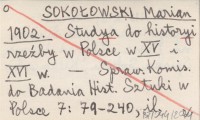 SOKOŁOWSKI Marian
1902. Studya do historyi
rzeźby w Polsce w XV i
XVI w. — Spraw. Komis.
do Badania Hist. Sztuki w
Polsce 7: 79-240, il.